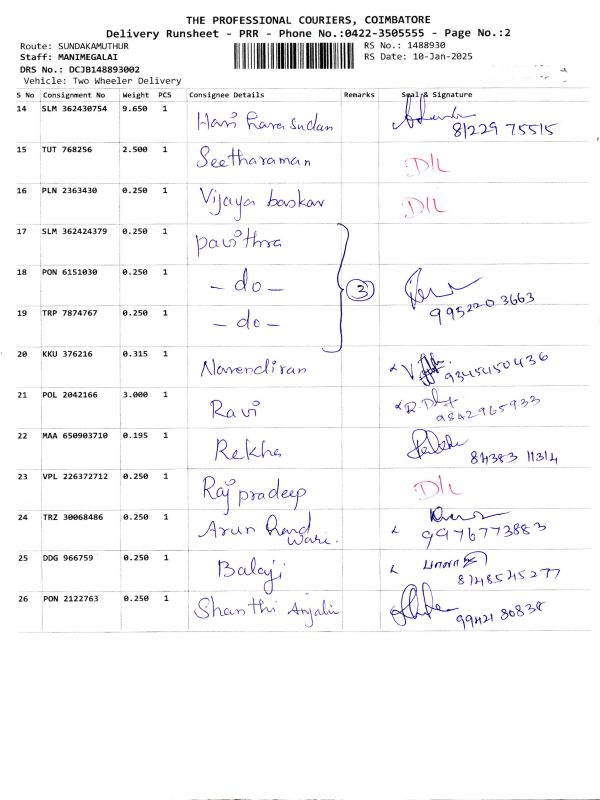 THE PROFESSIONAL COURIERS, COIMBATORE
Delivery Runsheet - PRR - Phone No.:0422-3505555 - Page No.:2
Route: SUNDAKAMUTHUR RS No.: 1488930
Staff: MANIMEGALAI RS Date: 10-Jan-2025
DRS No.: DCJB148893002
Vehicle: Two Wheeler Delivery
S No Consignment No Weight PCS Consignee Details Remarks Seal & Signature
14 SLM 362430754 9.650 1 Hari hara sudan 81229 75515
15 TUT 768256 2.500 1 Seetharaman D/L
16 PLN 2363430 0.250 1 Vijaya baskar D/L
17 SLM 362424379 0.250 1 pavithra
18 PON 6151030 0.250 1 - do - 3 9952203663
19 TRP 7874767 0.250 1 - do -
20 KKU 376216 0.315 1 Narendiran 9345450436
21 POL 2042166 3.000 1 Ravi 9842965933
22 MAA 650903710 0.195 1 Rekha 84383 11314
23 VPL 226372712 0.250 1 Raj pradeep D/L
24 TRZ 30068486 0.250 1 Arun 9976773883
25 DDG 966759 0.250 1 Balaji 8148545277
26 PON 2122763 0.250 1 Shanthi Anjalin 99421 80838